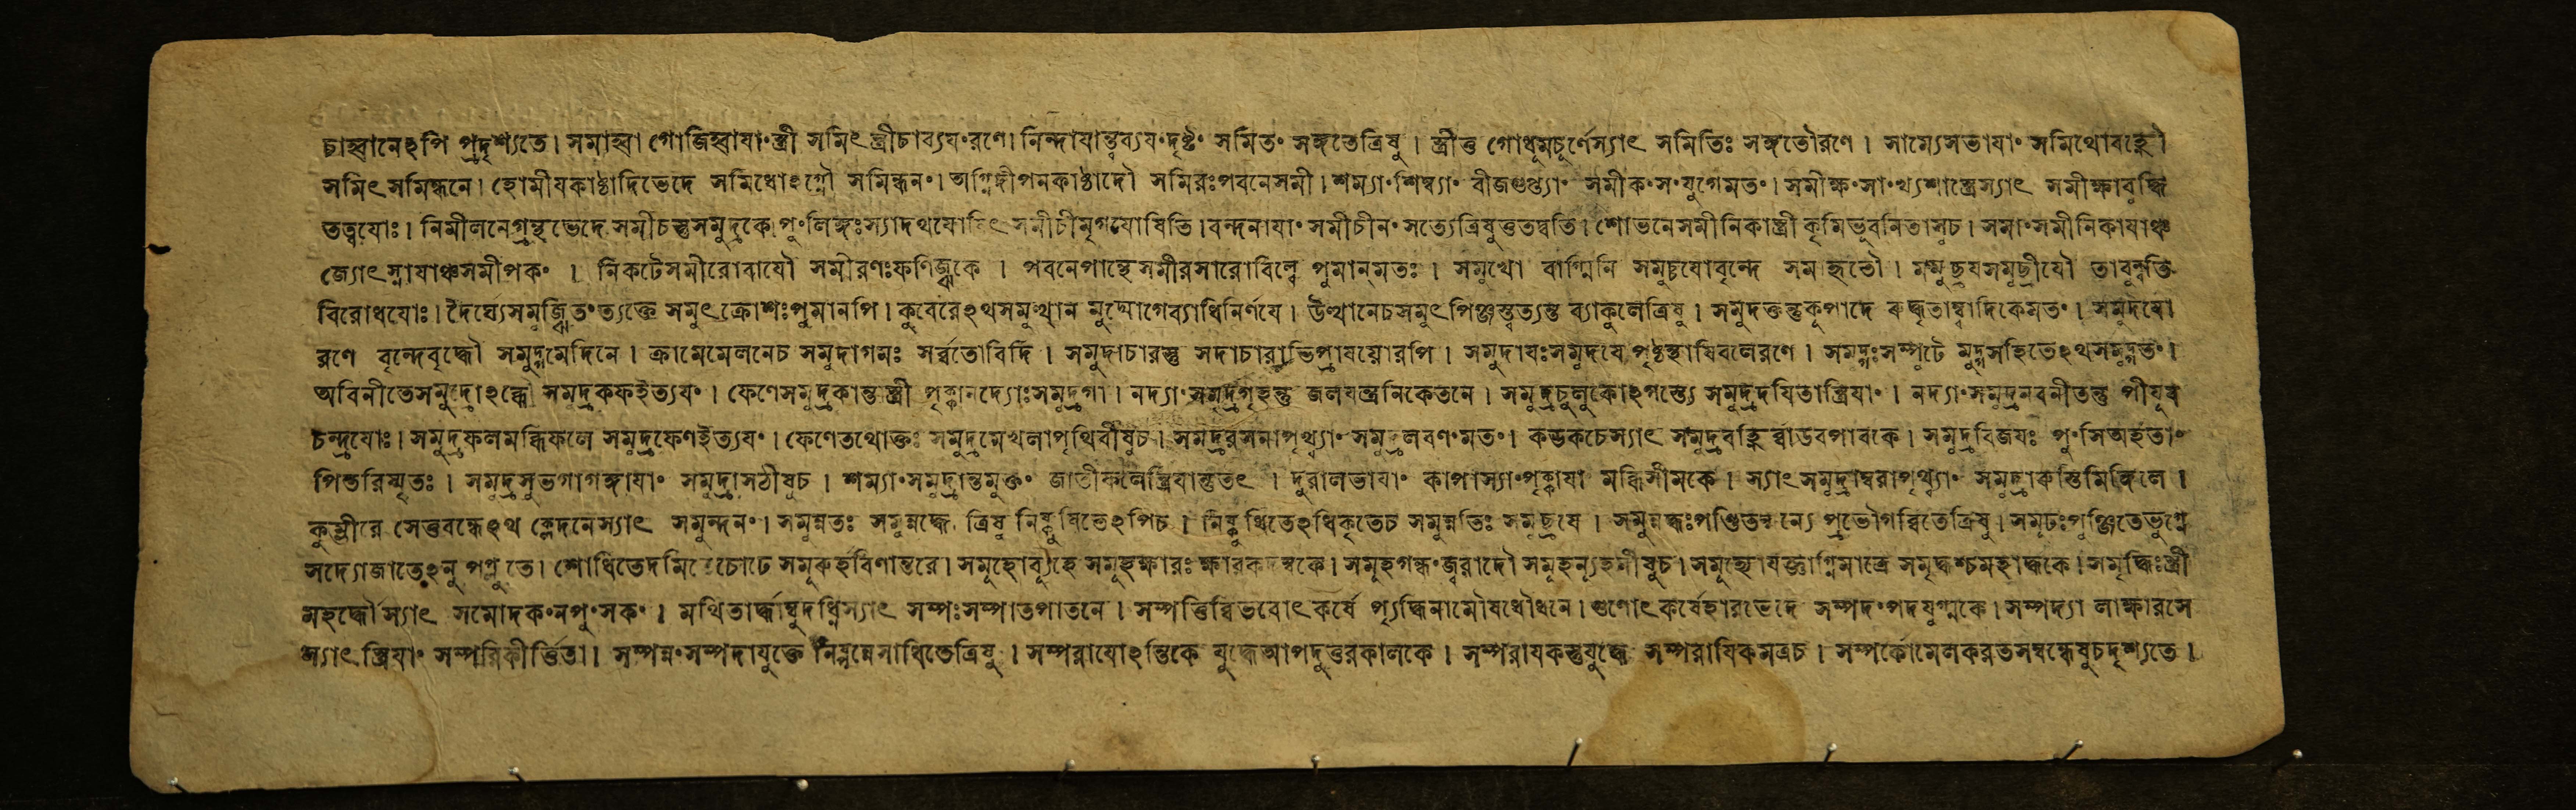 চাহ্বানেঽপি প্রদৃশ্যতে। সমাহ্বা গোজিহ্বাযাং স্ত্রী সমিৎ স্ত্রীচাব্যযং রণে। নিন্দাযান্ত্বব্যযং দৃষ্টং সমিতং সঙ্গতেত্রিষু। স্ত্রীতু গোধূমচূর্ণেস্যাৎ সমিতিঃ সঙ্গতৌরণে। সাম্যেসভাযাং সমিথোবহ্নৌ
সমিৎসমিন্ধনে। হোমীযকাষ্ঠাদিভেদে সমিধোঽগ্নৌ সমিন্ধনং। অগ্নিদীপনকাষ্ঠাদৌ সমিরঃপবনেসমী। শম্যাং শিম্ব্যাং বীজগুপ্ত্যাং সমীকং সংযুগেমতং। সমীক্ষং সাংখ্যশাস্ত্রেস্যাৎ সমীক্ষাবুদ্ধি
তত্ত্বযোঃ। নিমীলনেগ্রন্থভেদে সমীচস্তুসমুদ্রকে পুংলিঙ্গঃস্যাদথযোষিৎ সমীচীমৃগযোষিতি। বন্দনাযাং সমীচীনং সত্যেত্রিষুতুতদ্বতি। শোভনেসমীনিকাস্ত্রী কৃমিভূবনিতাসুচ। সমাংসমীনিকাযাঞ্চ
জ্যোৎস্নাযাঞ্চসমীপকং। নিকটেসমীরোবাযৌ সমীরণঃফণিজ্ঝকে। পবনেপান্থেসমীরসারোবিল্বে পুমান্মতঃ। সমুখো বাগ্মিনি সমুচ্চযোবৃন্দে সমাহৃতৌ। সমুচ্ছ্রযসমুচ্ছ্রাযৌ তাবুন্নতি
বিরোধযোঃ। দৈর্ঘ্যেসমুজ্ঝিতং ত্যক্তে সমুৎক্রোশঃপুমানপি। কুবেরেঽথসমুত্থান মুদ্যোগেব্যাধিনির্ণযে। উত্থানেচসমুৎপিঞ্জস্ত্বত্যন্ত ব্যাকুলেত্রিষু। সমুদক্তন্তুকূপাদে রুদ্ধৃতাম্ব্বাদিকেমতং। সমুদযো
রণে বৃন্দেবৃদ্ধৌ সমুদ্গমেদিনে। ক্রামেমেলনেচ সমুদাগমঃ সর্ব্বতোবিদি। সমুদাচারস্তু সদাচারাভিপ্রাযযোরপি। সমুদাযঃসমুদযে পৃষ্ঠস্থাযিবলেরণে। সমুদ্গঃসম্পুটে মুদ্গসহিতেঽথসমুদ্গতং।
অবিনীতেসমুদ্রোঽব্ধৌ সমুদ্রকফইত্যযং। ফেণেসমুদ্রকান্তাস্ত্রী পৃক্কানদ্যোঃসমুদ্রগা। নদ্যাং সমুদ্রগৃহন্তু জলযন্ত্রনিকেতনে। সমুদ্রচুলুকোঽগস্ত্যে সমুদ্রদযিতাস্ত্রিযাং। নদ্যাং সমুদ্রনবনীতন্তু পীযূষ
চন্দ্রযোঃ। সমুদ্রফলমব্ধিফলে সমুদ্রফেণইত্যযং। ফেণেতথোক্তঃ সমুদ্রমেখলাপৃথিবীষুচ। সমুদ্ররসনাপৃথ্ব্যাং সমুদ্রলবণংমতং। কড়কচেস্যাৎ সমুদ্রবহ্নির্বাডবপাবকে। সমুদ্রবিজযঃ পুংসিঅর্হতাং
পিতরিস্মৃতঃ। সমুদ্রসুভগাগঙ্গাযাং সমুদ্রাসঠীষুচ। শম্যাং সমুদ্রান্তমুক্তং জাতীফলেস্ত্রিযান্তুতৎ। দুরালভাযাং কার্পাস্যাং পৃক্কাযা মব্ধিসীমকে। স্যাৎসমুদ্রাম্বরাপৃথ্ব্যাং সমুদ্রারুস্তিমিঙ্গিলে।
কুম্ভীরে সেতুবন্ধেঽথ ক্লেদনেস্যাৎ সমুন্দনং। সমুন্নতঃ সমুন্নদ্ধে ত্রিষু নিষ্কুষিতেঽপিচ। অধিকৃতেচ সমুন্নতিঃ সমুচ্ছ্রযে। সমুন্নদ্ধঃপণ্ডিতম্মন্যে প্রভৌগর্ব্বিতেত্রিষু। সমূঢঃপুঞ্জিতেভুগ্নে
সদ্যোজাতেঽনুপপ্লুতে। শোধিতেদমিতেচোঢে সমূরুর্হরিণান্তরে। সমূহোব্যূহে সমূহক্ষারঃক্ষারকদম্বকে। সমূহগন্ধংজ্বরাদৌ সমূহন্যূহনীষুচ। সমূহ্যোযজ্ঞাগ্নিমাত্রে সমৃদ্ধশ্চমহার্দ্ধকে। সমৃদ্ধিঃস্ত্রী
মহর্দ্ধৌস্যাৎ সমোদকংনপুংসকং। মথিতার্দ্ধাম্বুদধ্নিস্যাৎ সম্পঃসম্পাতপাতনে। সম্পত্তির্বিভবোৎকর্ষে প্যৃদ্ধিনামৌষধৌধনে। গুণোৎকর্ষেহারভেদে সম্পদংপদযুগ্মকে। সম্পদ্যা লাক্ষারসে
স্যাৎ স্ত্রিযাং সম্পন্নিকীর্ত্তিতা। সম্পন্নং সম্পদাযুক্তে ত্রিষু। সম্পরাযোঽন্তিকে যুদ্ধেআপদুত্তরকালকে। সম্পরাযকন্তুযুদ্ধে সম্পরাযিকমত্রচ। সম্পর্কোমেলকরতসম্বন্ধেষুচদৃশ্যতে।